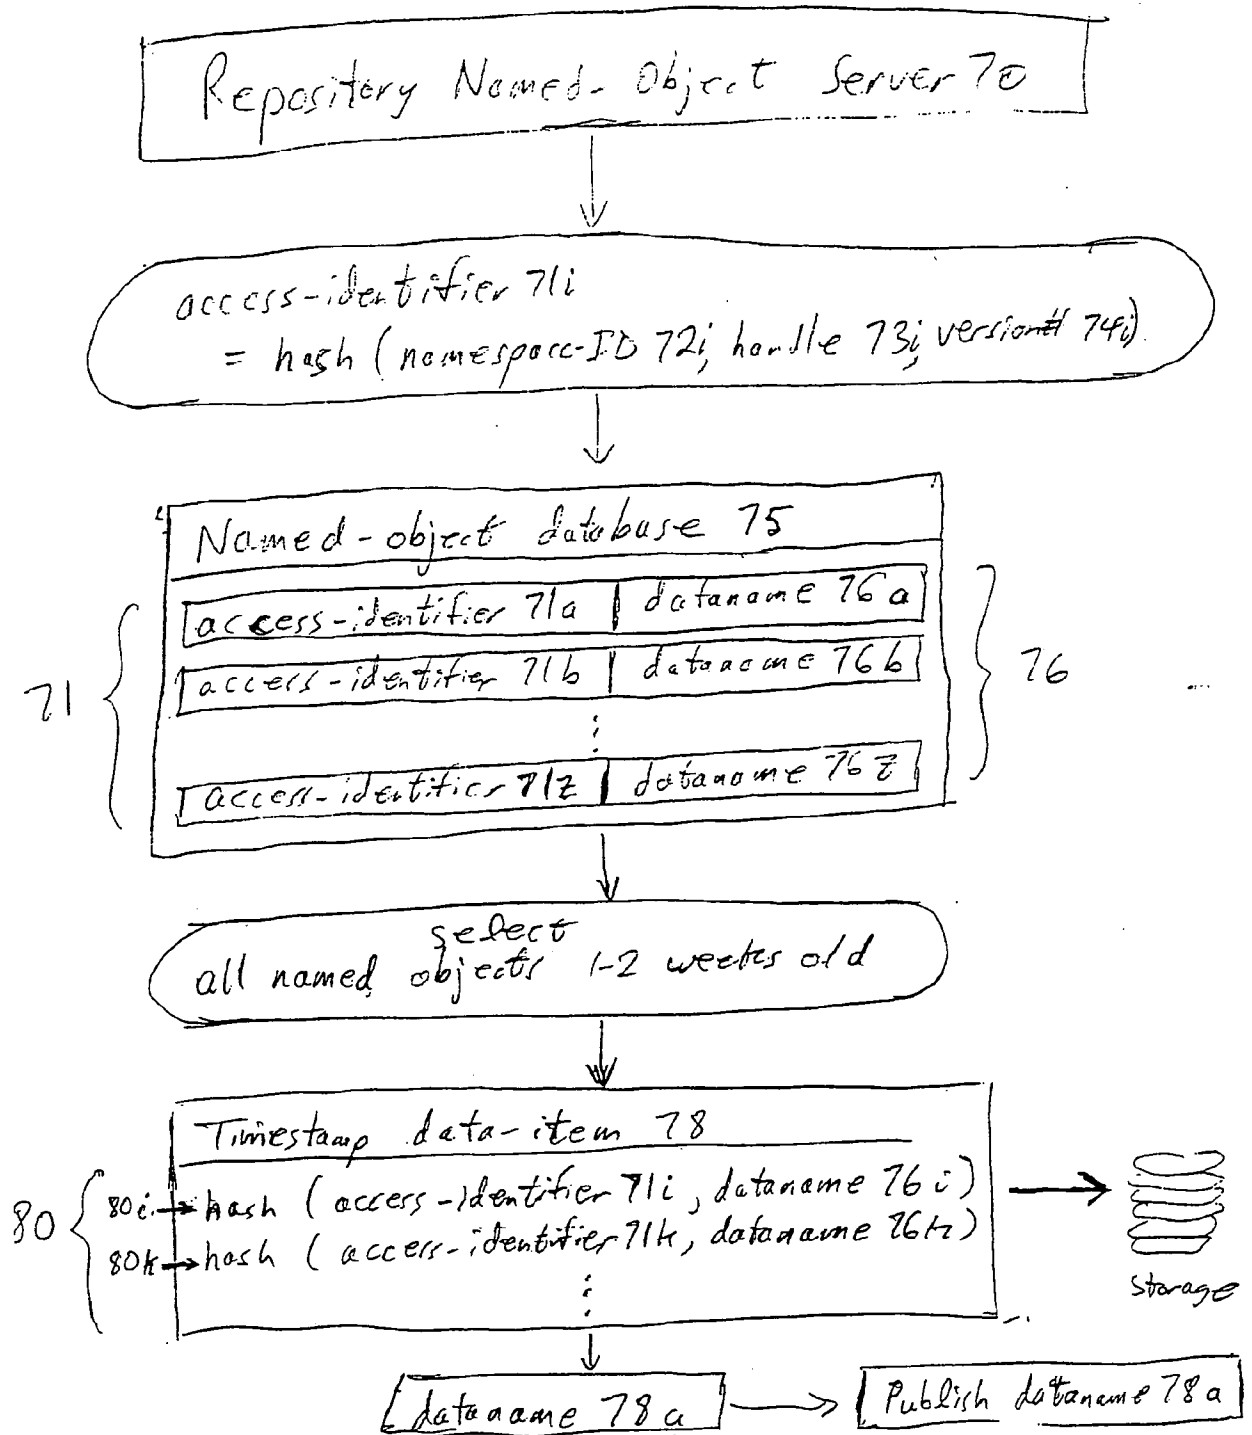 Repository Named-Object Server 70
access-identifier 71i
= hash (namespace-ID 72i, handle 73i, version# 74i)
Named-object database 75
access-identifier 71a | dataname 76a
access-identifier 71b | dataname 76b
71
76
⋮
access-identifier 71z | dataname 76z
select
all named objects 1-2 weeks old
Timestamp data-item 78
80i → hash (access-identifier 71i, dataname 76i)
80
80k → hash (access-identifier 71k, dataname 76k)
⋮
storage
dataname 78a
Publish dataname 78a